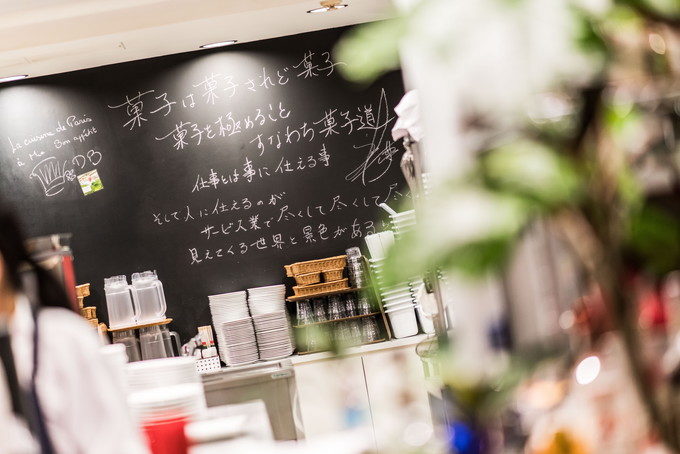 La cuisine de Paris
à Mon Bon appétit
DB
菓子は菓子されど菓子
菓子を極めること
すなわち菓子道
仕事とは事に仕える事
そして人に仕えるのが
サービス業で尽くして尽くして尽く
見えてくる世界と景色がある